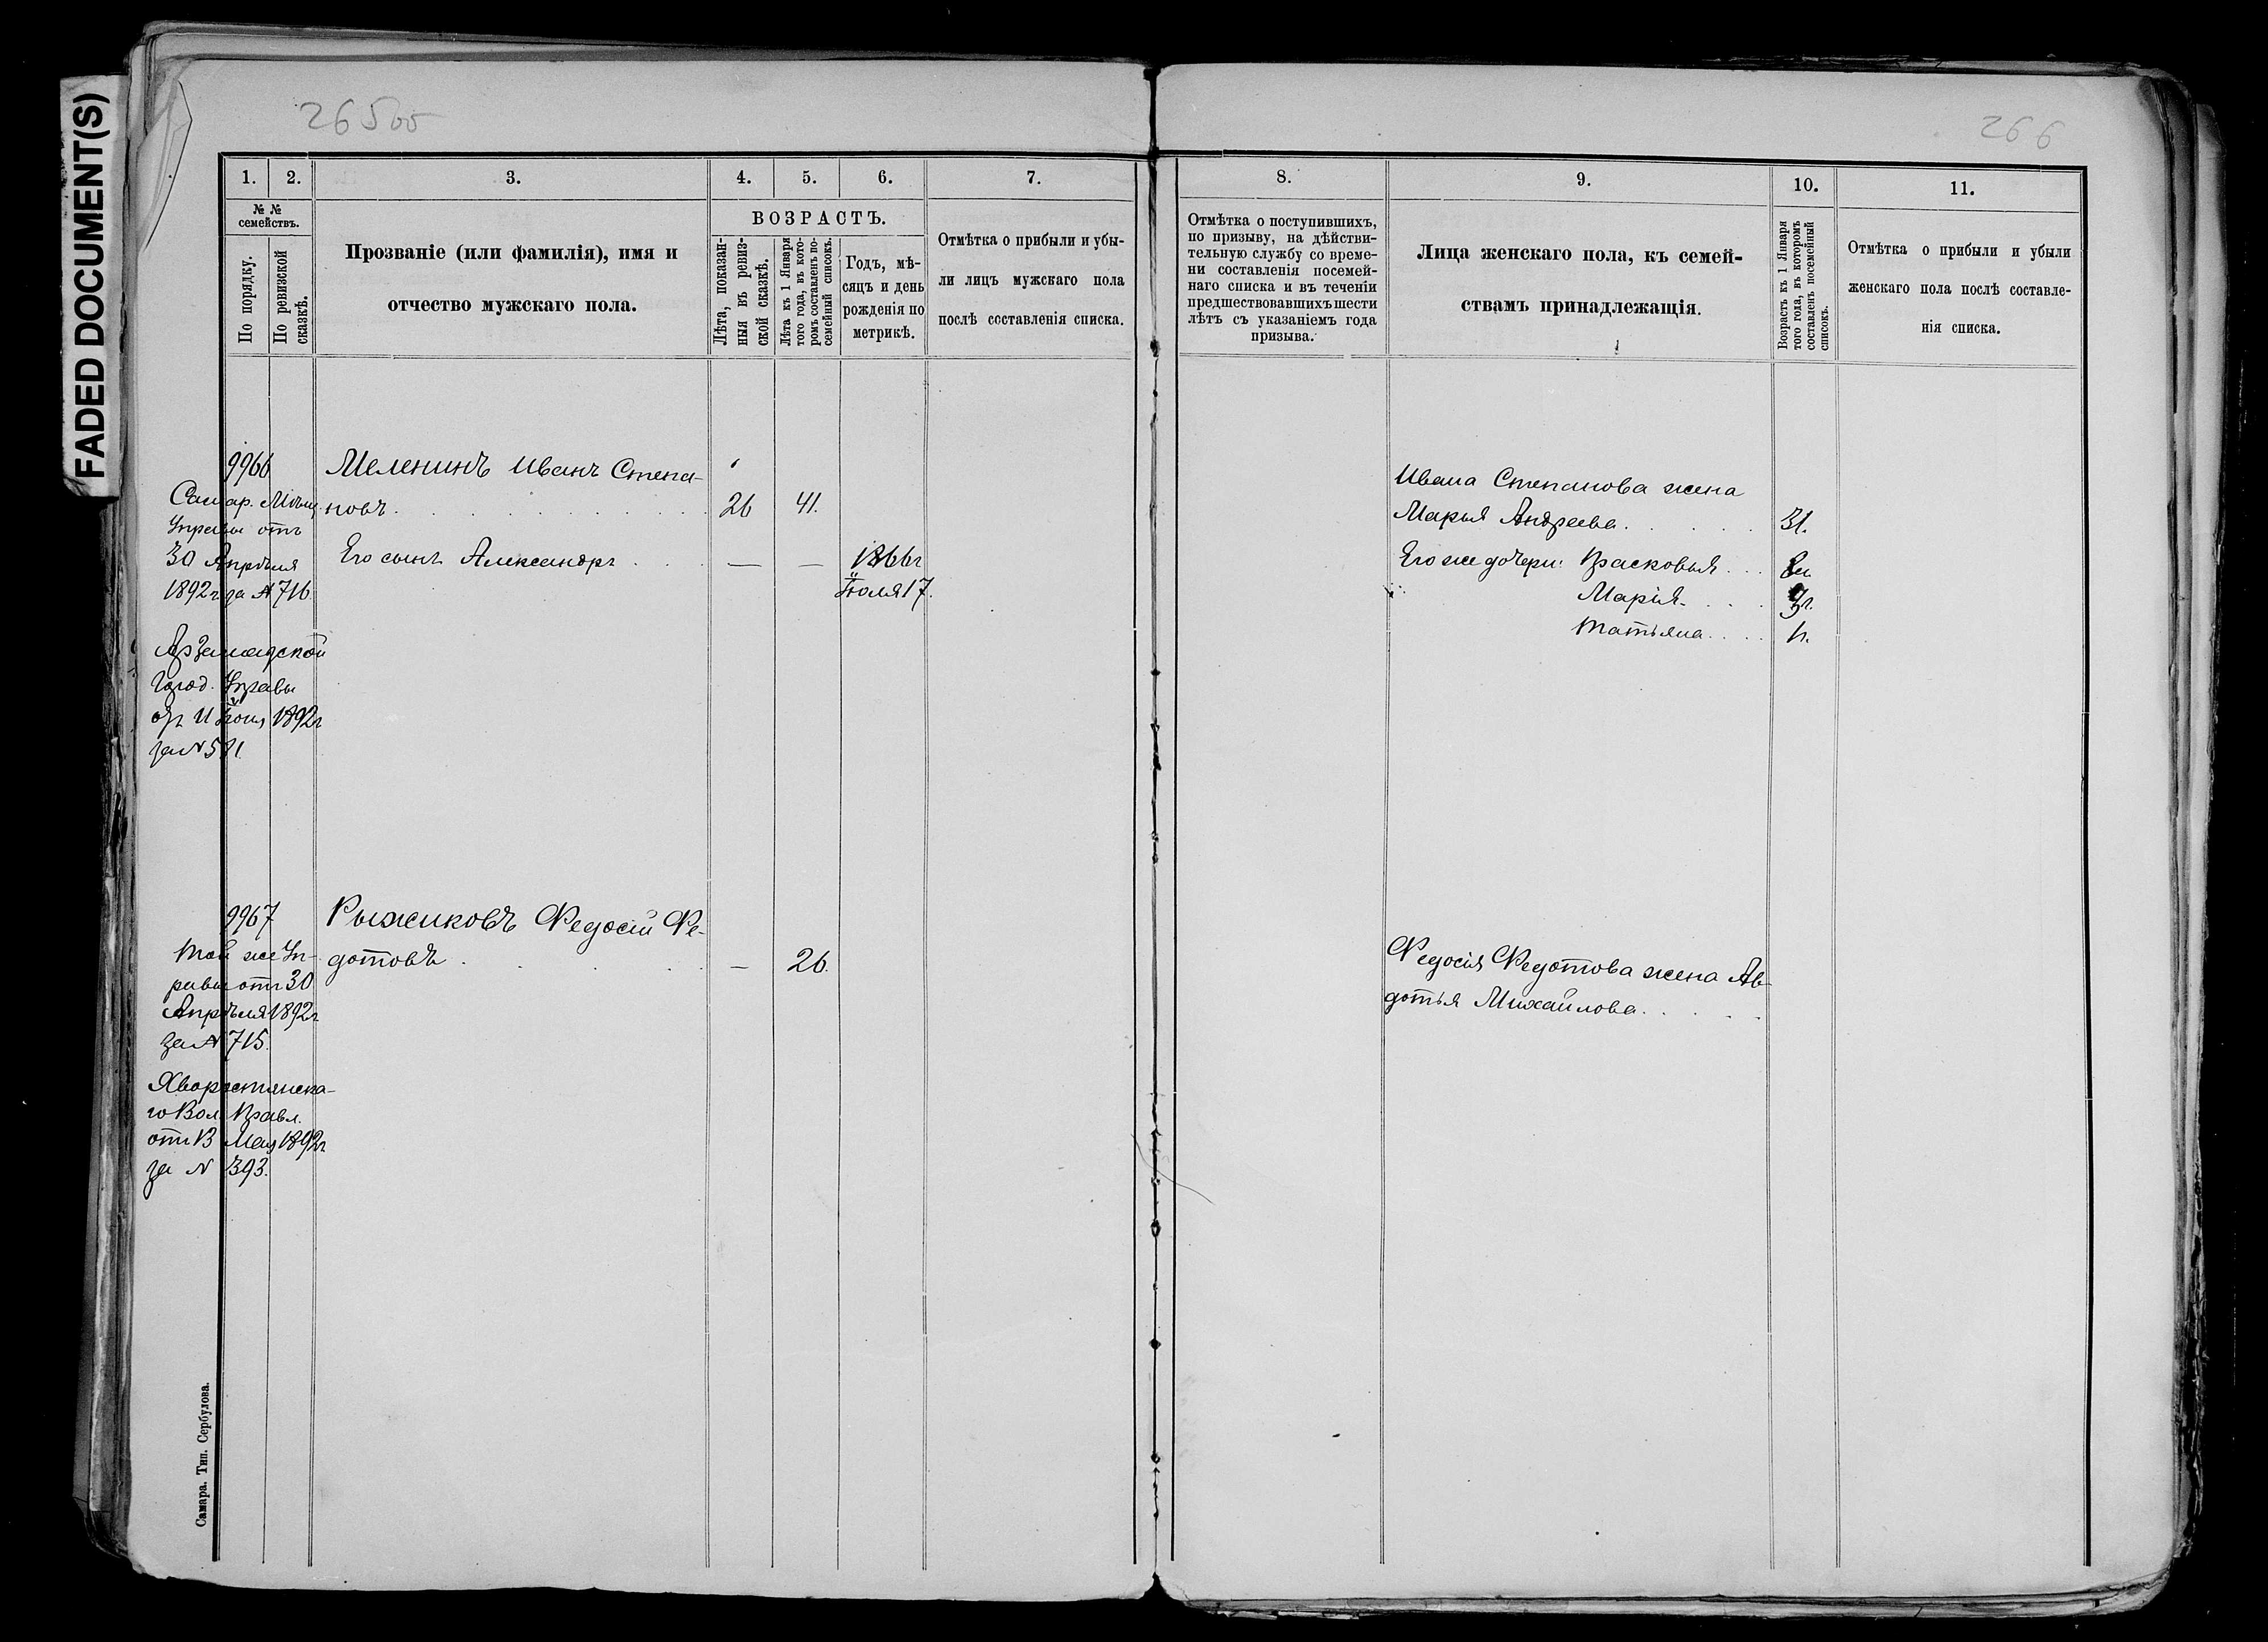 FADED DOCUMENT(S)
265об
266
1.
2.
3.
4.
5.
6.
7.
№ №
семействъ.
По порядку.
По ревизской
сказкѣ.
Прозваніе (или фамилія), имя и
отчество мужскаго пола.
ВОЗРАСТЪ.
Лѣта, показан-
ныя въ ревиз-
ской сказкѣ.
Лѣта къ 1 Января
того года, въ кото-
ромъ составленъ по-
семейный списокъ.
Годъ, мѣ-
сяцъ и день
рожденія по
метрикѣ.
Отмѣтка о прибыли и убы-
ли лицъ мужскаго пола
послѣ составленія списка.
9966
Самар. Мѣщ.
Управы отъ
30 Апрѣля
1892 г. за № 716.
Арзамасской
Город. Управы
Іюня 1892 г
за №
Меленинъ Иванъ Степа-
новъ
26
41.
Его сынъ Александръ
—
—
1866 г
Іюля 17.
9967
Той же Уп-
равы отъ 30
Апрѣля 1892 г
за № 715.
Хворостянска-
го Вол. Правл.
от 13 Мая 1892 г
за № 393.
Рыжиковъ Федосій Фе-
дотовъ
—
26.
Самара. Тип. Сербулова.
8.
9.
10.
11.
Отмѣтка о поступившихъ,
по призыву, на дѣйстви-
тельную службу со време-
ни составленія посемей-
наго списка и въ теченіи
предшествовавшихъ шести
лѣтъ съ указаніемъ года
призыва.
Лица женскаго пола, къ семей-
ствамъ принадлежащія.
Возрастъ къ 1 Января
того года, въ которомъ
составленъ посемейный
списокъ.
Отмѣтка о прибыли и убыли
женскаго пола послѣ составле-
нія списка.
Ивана Степанова жена
Марья Андреева
31.
Его же дочери: Прасковья
Марія
Татьяна
Федосія Федотова жена Ав-
дотья Михайлова